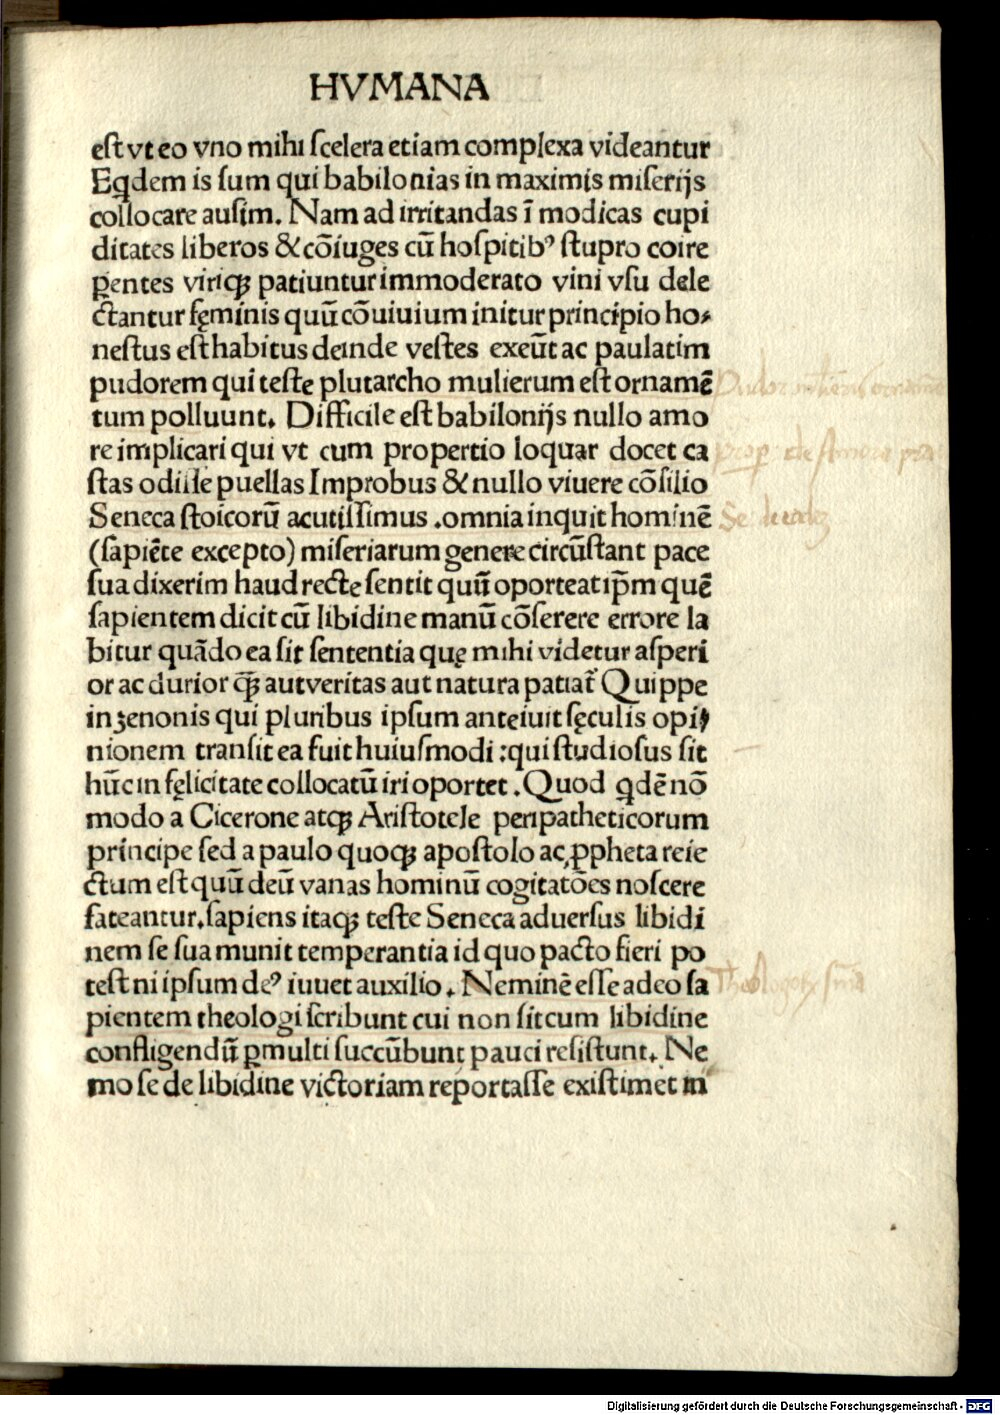 HVMANA
eſt vt eo vno mihi ſcelera etiam complexa videantur
Eqdem is ſum qui babilonias in maximis miſerijs
collocare auſim. Nam ad irritandas ī modicas cupi
ditates liberos & cōiuges cū hoſpitibꝰ ſtupro coire
ꝑentes viriqꝫ patiuntur immoderato vini vſu dele
ctantur fęminis quū cōuiuium initur principio ho-
neſtus eſt habitus deinde veſtes exeūt ac paulatim
pudorem qui teſte plutarcho mulierum eſt ornamē
tum polluunt. Difficile eſt babilonijs nullo amo
re implicari qui vt cum propertio loquar docet ca
ſtas odiſſe puellas Improbus & nullo viuere cōſilio
Seneca ſtoicorū acutiſſimus .omnia inquit hominē
(ſapiēte excepto) miſeriarum genere circūſtant pace
ſua dixerim haud recte ſentit quū oporteat ip̄m quē
ſapientem dicit cū libidine manū cōſerere errore la
bitur quādo ea ſit ſententia quę mihi videtur aſperi
or ac durior q̄ꝫ aut veritas aut natura patiat᷑ Quippe
in ʒenonis qui pluribus ipſum anteiuit ſęculis opi-
nionem tranſit ea fuit huiuſmodi : qui ſtudioſus ſit
hūc in fęlicitate collocatū iri oportet . Quod qdē nō
modo a Cicerone atqꝫ Ariſtotele peripatheticorum
principe ſed a paulo quoqꝫ apoſtolo ac ꝓpheta reie
ctum eſt quū deū vanas hominū cogitatōes noſcere
fateantur. ſapiens itaqꝫ teſte Seneca aduerſus libidi
nem ſe ſua munit temperantia id quo pacto fieri po
teſt ni ipſum deꝰ iuuet auxilio . Neminē eſſe adeo ſa
pientem theologi ſcribunt cui non ſit cum libidine
confligendū ꝑmulti ſuccūbunt pauci reſiſtunt. Ne
mo ſe de libidine victoriam reportaſſe exiſtimet ni
Digitalisierung gefördert durch die Deutsche Forschungsgemeinschaft - DFG